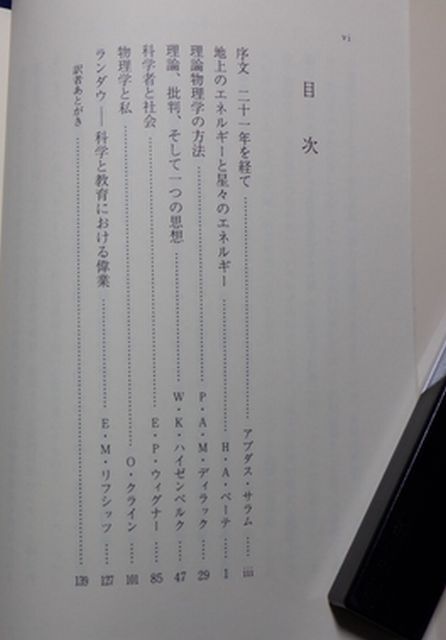 vi
目次
序文 二十一年を経て……アブダス・サラム……iii
地上のエネルギーと星々のエネルギー……H・A・ベーテ……1
理論物理学の方法……P・A・M・ディラック……29
理論、批判、そして一つの思想……W・K・ハイゼンベルク……47
科学者と社会……E・P・ウィグナー……85
物理学と私……O・クライン……101
ランダウ——科学と教育における偉業……E・M・リフシッツ……127
訳者あとがき……139